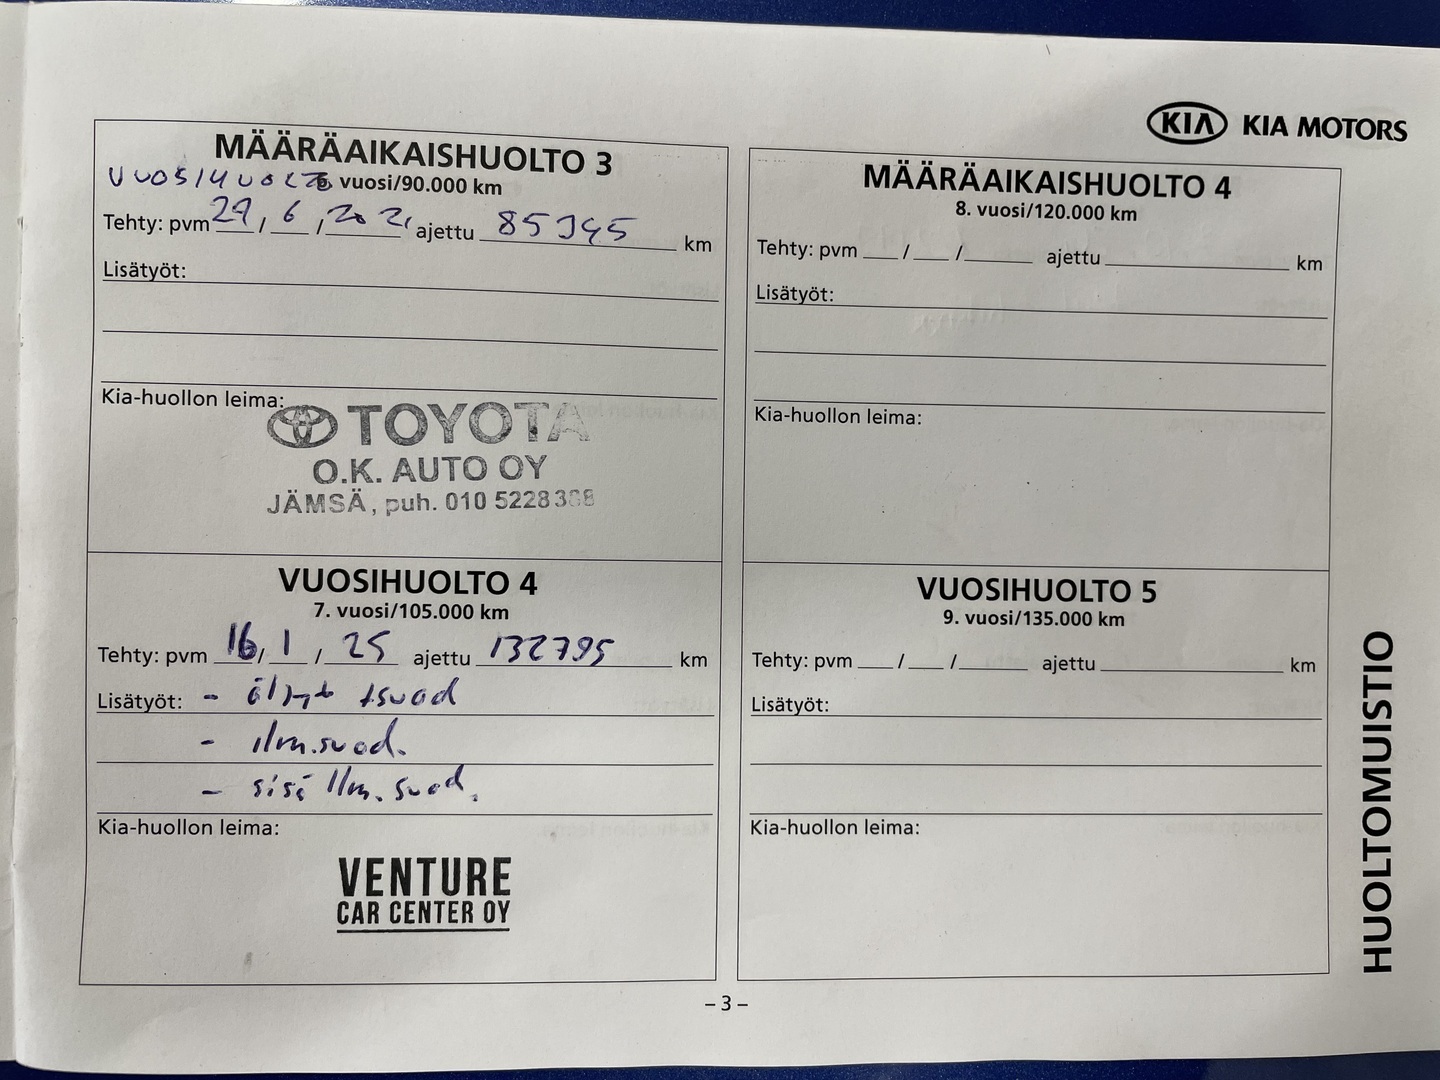 KIA KIA MOTORS
MÄÄRÄAIKAISHUOLTO 3
VUOSIHUOLTO 6. vuosi/90.000 km
Tehty: pvm 29 / 6 / 2021 ajettu 85345 km
Lisätyöt:
Kia-huollon leima:
TOYOTA
O.K. AUTO OY
JÄMSÄ, puh. 010 5228
VUOSIHUOLTO 4
7. vuosi/105.000 km
Tehty: pvm 16 / 1 / 25 ajettu 132795 km
Lisätyöt: - öljyt +suod
- ilm.suod.
- sisä ilm. suod.
Kia-huollon leima:
VENTURE
CAR CENTER OY
MÄÄRÄAIKAISHUOLTO 4
8. vuosi/120.000 km
Tehty: pvm ___ / ___ / ______ ajettu ______ km
Lisätyöt:
Kia-huollon leima:
VUOSIHUOLTO 5
9. vuosi/135.000 km
Tehty: pvm ___ / ___ / ______ ajettu ______ km
Lisätyöt:
Kia-huollon leima:
HUOLTOMUISTIO
– 3 –